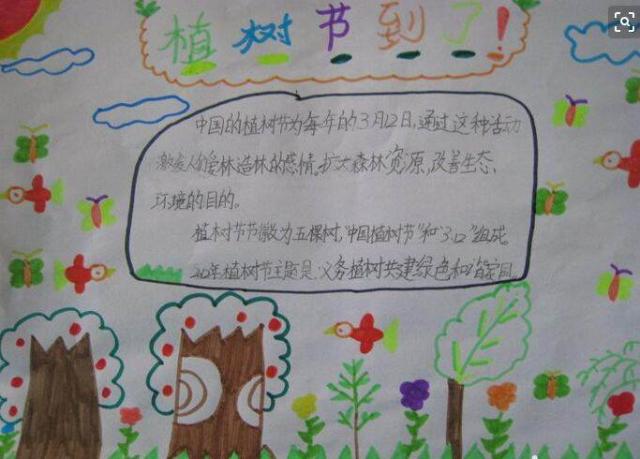 植树节到了!
中国的植树节为每年的3月12日,通过这种活动
激发人们爱林造林的感情,扩大森林资源,改善生态、
环境的目的。
植树节节徽为五棵树,"中国植树节"和"3.12"组成。
植树节主题是:义务植树共建绿色和谐家园